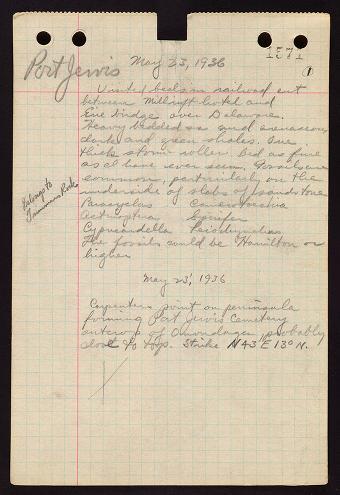 Port Jervis
May 23, 1936
1571
1
Visited beds in railroad cut
between Millrift hotel and
Erie bridge over Delaware.
Heavy bedded ss and arenaceous
dark and green shales. One
thick storm roller bed as fine
as I have ever seem. Fossils are
common, particularly on the
underside of slabs of sandstone
Belongs to
Trimmers Rock
Camarotoechia
Spirifer
Cypricardella
The fossils would be Hamilton or
higher
May 23, 1936
Carpenters point on peninsula
forming Port Jervis Cemetery
outcrop of Onondaga, probably
close to top. Strike N43°E 13° N.